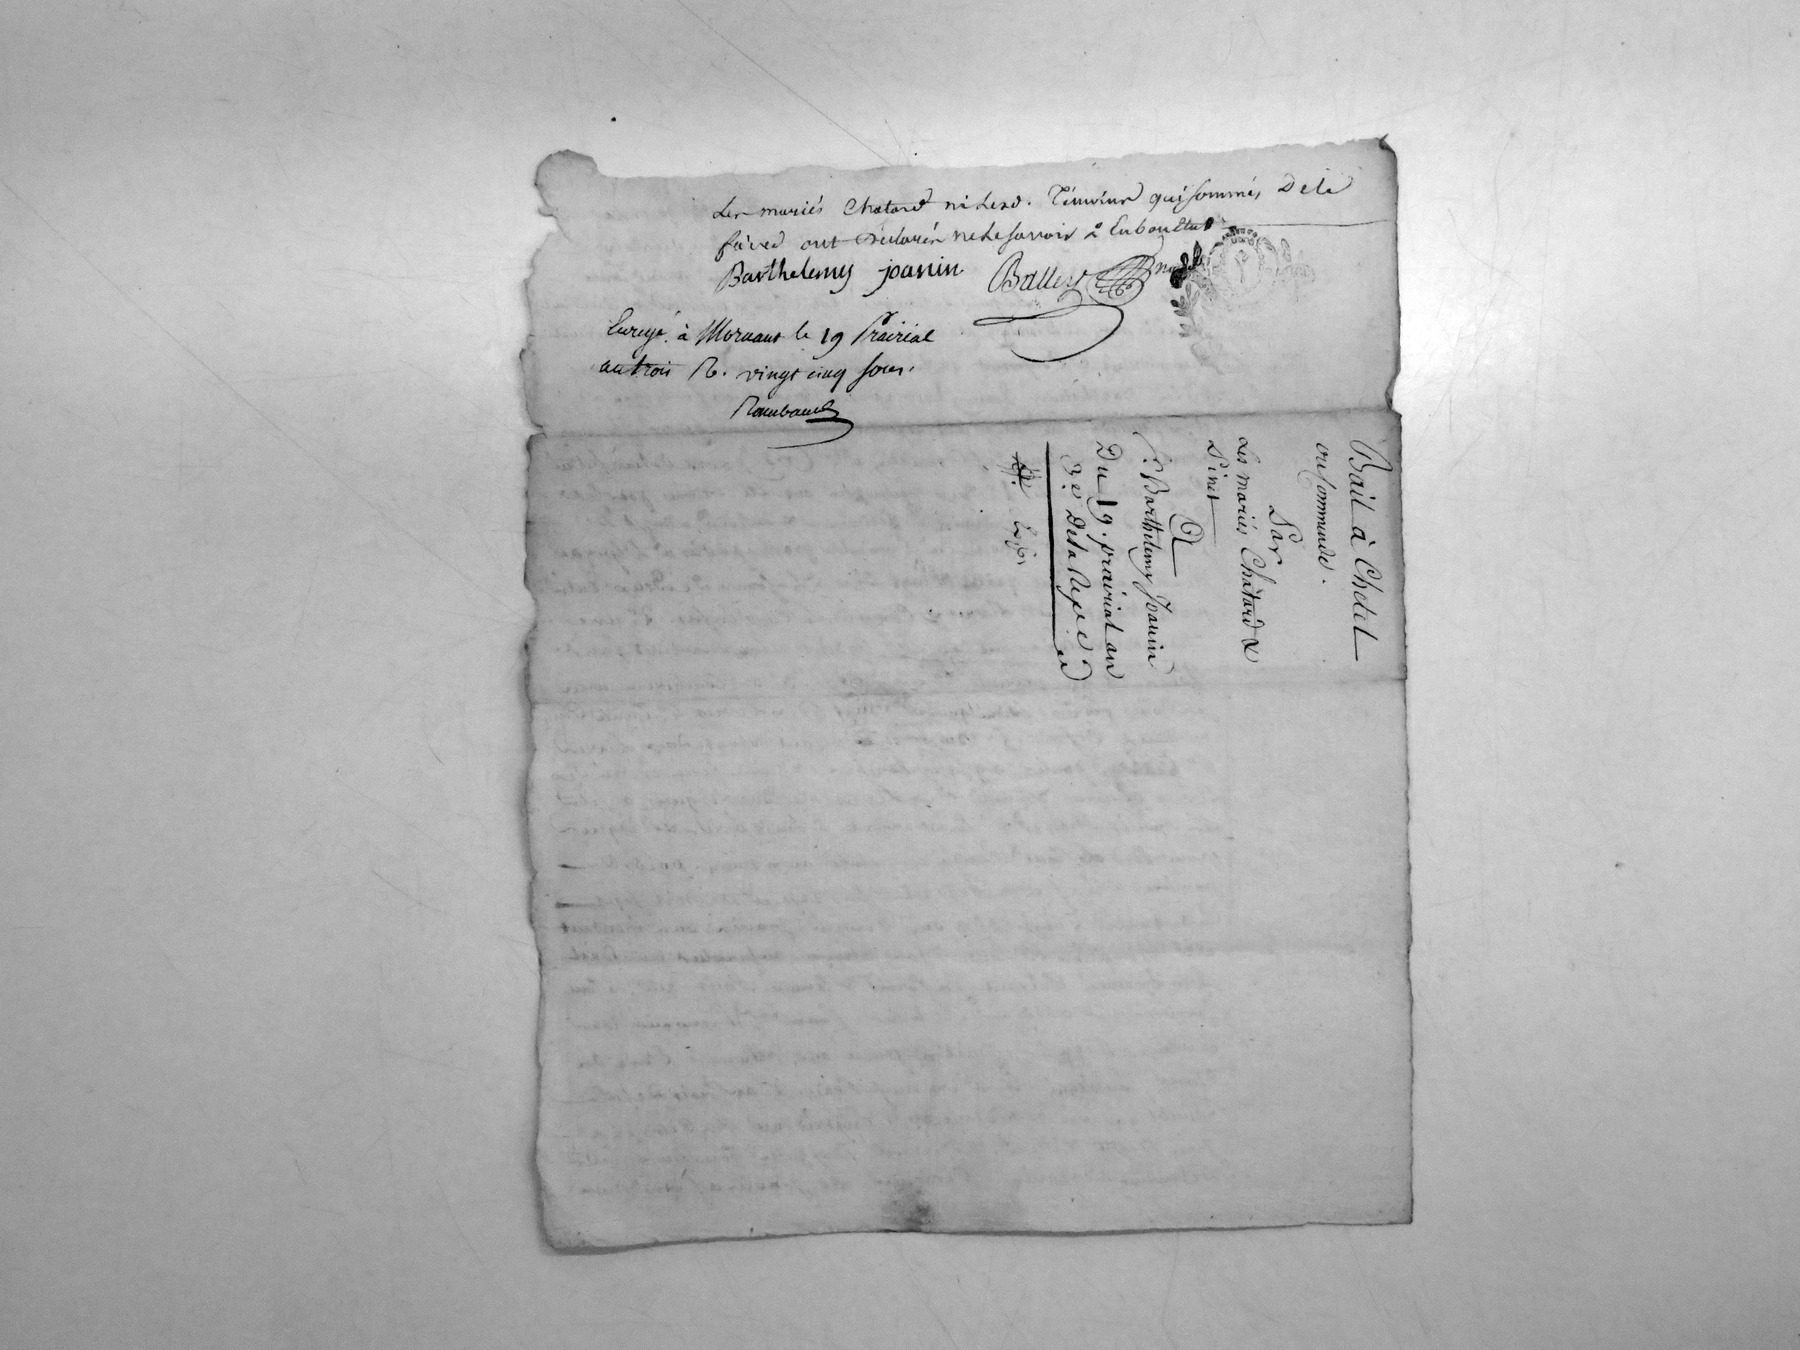 Les mariés Chatard ni Lesd. Témoins qui sommés De le
faire ont déclarés ne le savoir
Barthelemy joanin Ballery
Enregé. à Mornant le 19 Prairial
an trois R. vingt cinq sous.
Raimbaud
Bail à Chetel
ou Commande.
Par
Les mariés Chatard &
Pinet
A
C. Barthelemy Joanin
Du 19. prairial an
3e. De la Repe.